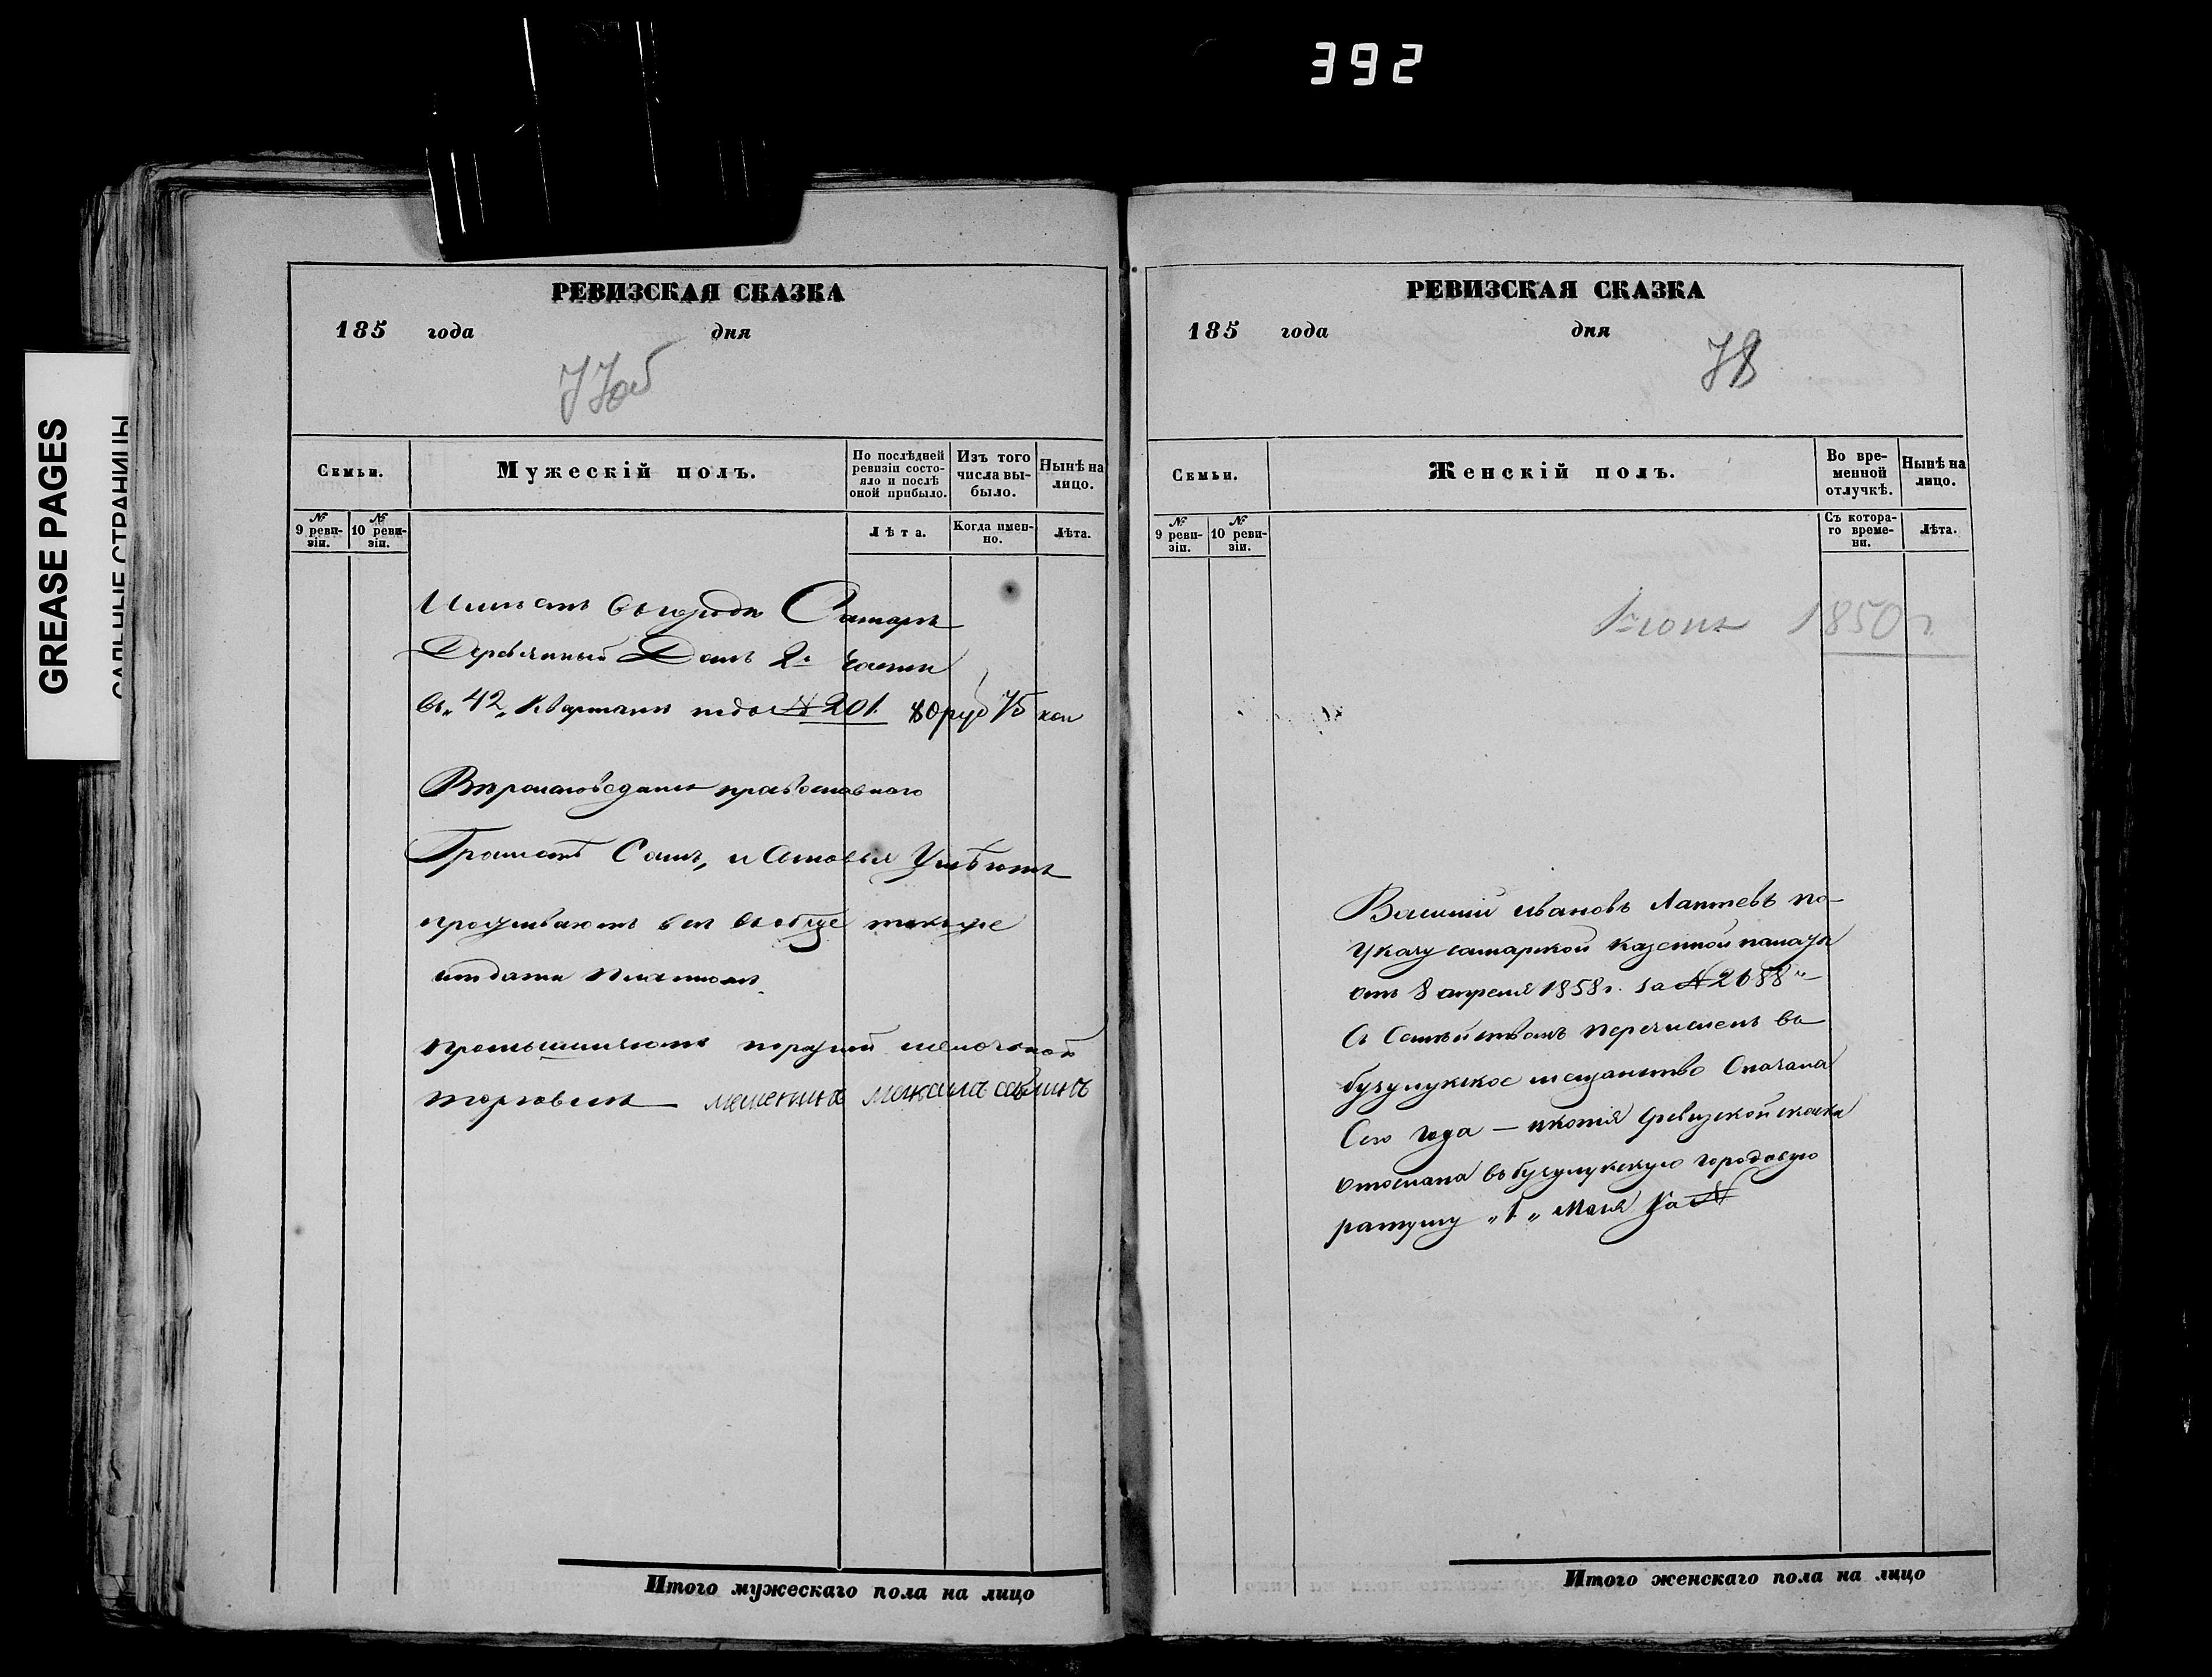 392
GREASE PAGES
САЛЬНЫЕ СТРАНИЦЫ
РЕВИЗСКАЯ СКАЗКА
185 года дня
77об
Семьи.
Мужескій полъ.
По послѣдней ревизіи состояло и послѣ оной прибыло.
Изъ того числа выбыло.
Нынѣ на лицо.
№ 9 ревизіи.
№ 10 ревизіи.
Лѣта.
Когда именно.
Лѣта.
въ городе Самаре
Деревянный Домъ 2й части
въ "42" Квартале подъ № 201. 80 руб 75 коп
Вероисповедания православнаго
Грамотѣ Самъ, и
проживаютъ все вобще
торговли
Итого мужескаго пола на лицо
РЕВИЗСКАЯ СКАЗКА
185 года дня
78
Семьи.
Женскій полъ.
Во временной отлучкѣ.
Нынѣ на лицо.
№ 9 ревизіи.
№ 10 ревизіи.
Съ котораго времени.
Лѣта.
1850 г
Василий ивановъ Лаптевъ по
указу самарской казенной палаты
отъ 8 апреля 1858 г. за № 2688
С Семействомъ перечисленъ въ
бузулукское мещанство Сначала
Сего года — икопия Сревизской сказки
отослана въ бузулукскую городовую
ратушу "1" мая За №
Итого женскаго пола на лицо